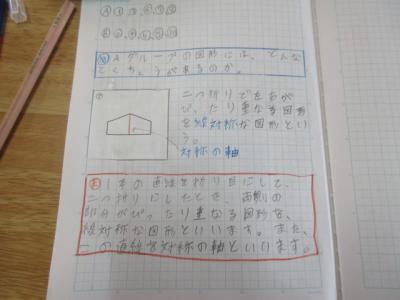 Aグループの図形には、どんな
とくちょうがあるのか。
二つ折りで
ぴ、たり重なる図形
を線対称な図形とい
う。
対称の軸
1本の直線を折り目にして、
二つ折りにしたとき、両側の
部分がぴったり重なる図形を、
線対称な図形といいます。また、
の直線を対称の軸といいます。